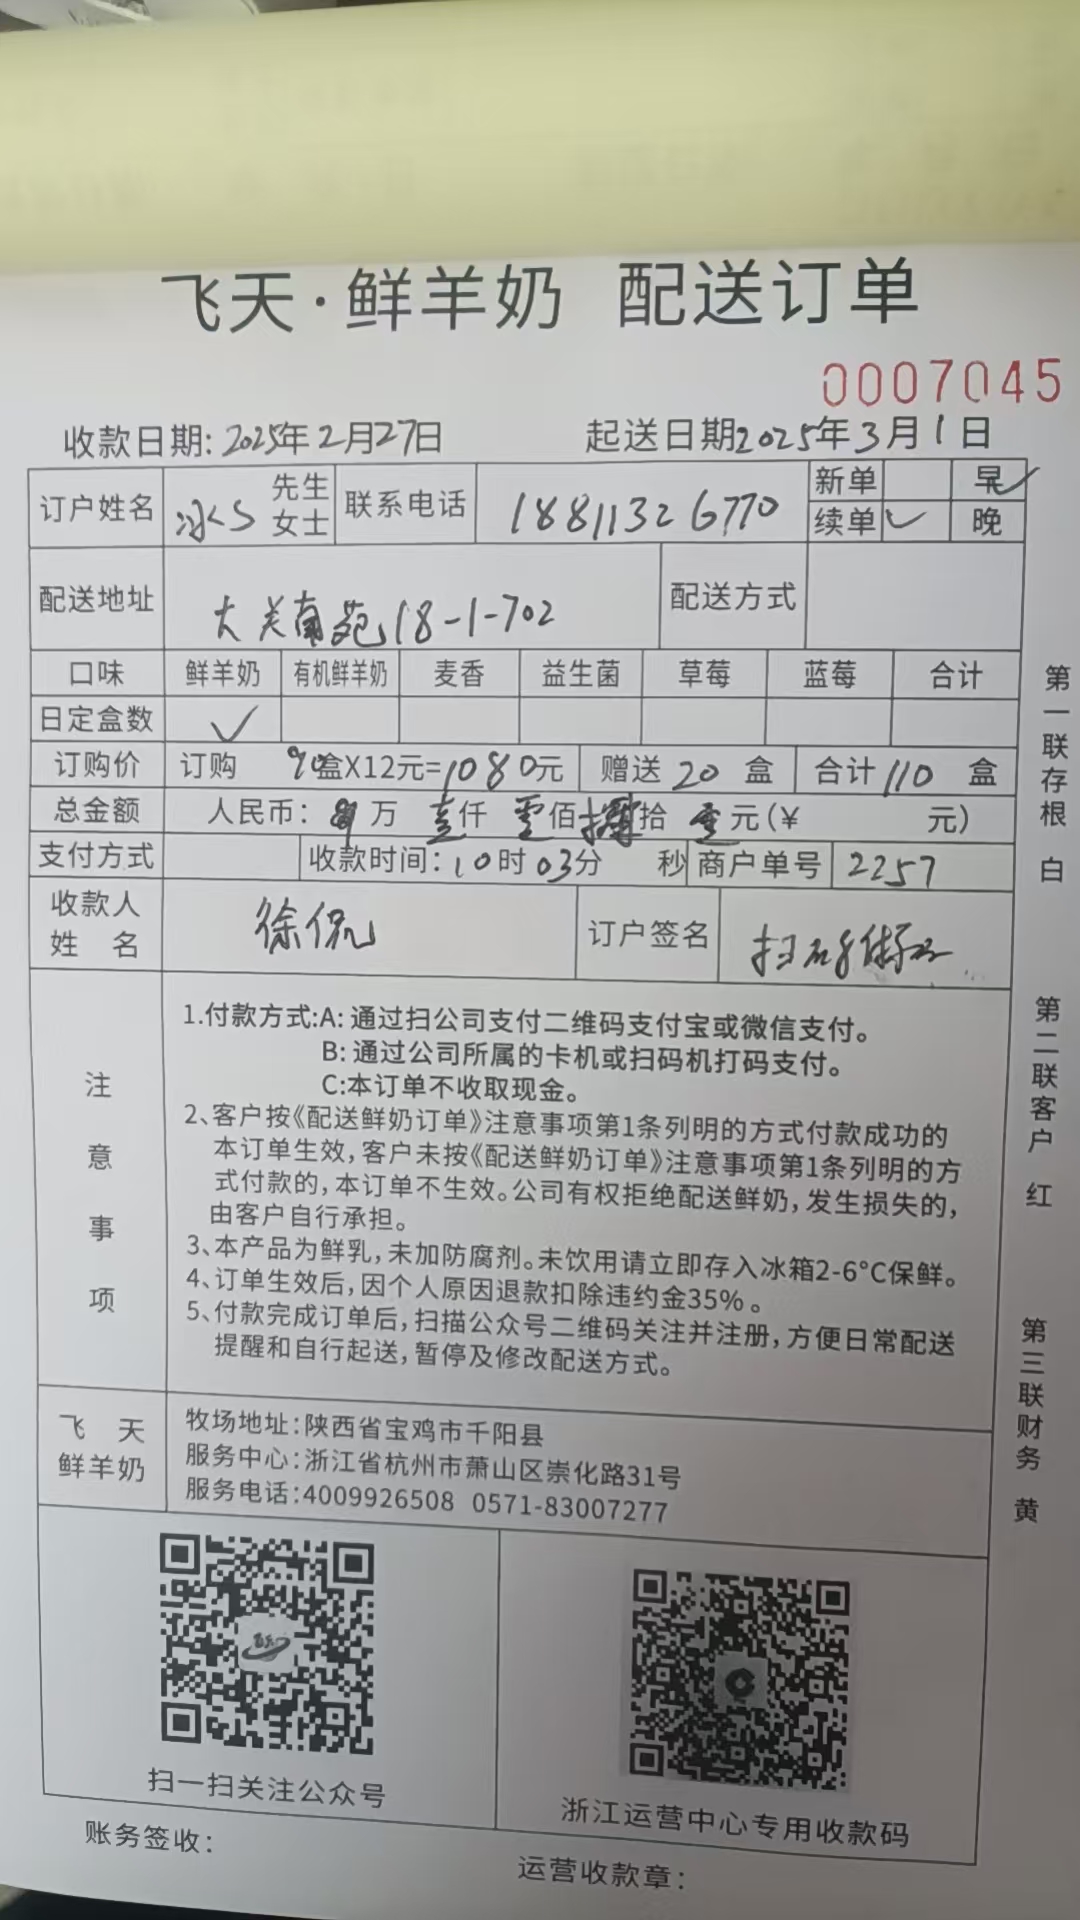 飞天·鲜羊奶 配送订单
0007045
收款日期: 2025年2月27日 起送日期2025年3月1日
订户姓名 先生 女士 联系电话 18811326770 新单 早✓
续单✓ 晚
配送地址 大关南苑18-1-702 配送方式
口味 鲜羊奶 有机鲜羊奶 麦香 益生菌 草莓 蓝莓 合计
日定盒数 ✓
订购价 订购 90盒X12元=1080元 赠送 20 盒 合计110 盒
总金额 人民币: 万 壹仟 零佰 捌拾 零元(¥ 元)
支付方式 收款时间:10时03分 秒 商户单号 2257
收款人姓名 徐侃 订户签名 扫码
注意事项
1.付款方式:A: 通过扫公司支付二维码支付宝或微信支付。
B: 通过公司所属的卡机或扫码机打码支付。
C:本订单不收取现金。
2、客户按《配送鲜奶订单》注意事项第1条列明的方式付款成功的
本订单生效,客户未按《配送鲜奶订单》注意事项第1条列明的方
式付款的,本订单不生效。公司有权拒绝配送鲜奶,发生损失的,
由客户自行承担。
3、本产品为鲜乳,未加防腐剂。未饮用请立即存入冰箱2-6°C保鲜。
4、订单生效后,因个人原因退款扣除违约金35%。
5、付款完成订单后,扫描公众号二维码关注并注册,方便日常配送
提醒和自行起送,暂停及修改配送方式。
飞天鲜羊奶
牧场地址:陕西省宝鸡市千阳县
服务中心:浙江省杭州市萧山区崇化路31号
服务电话:4009926508 0571-83007277
扫一扫关注公众号
浙江运营中心专用收款码
账务签收:
运营收款章:
第一联存根 白
第二联客户 红
第三联财务 黄